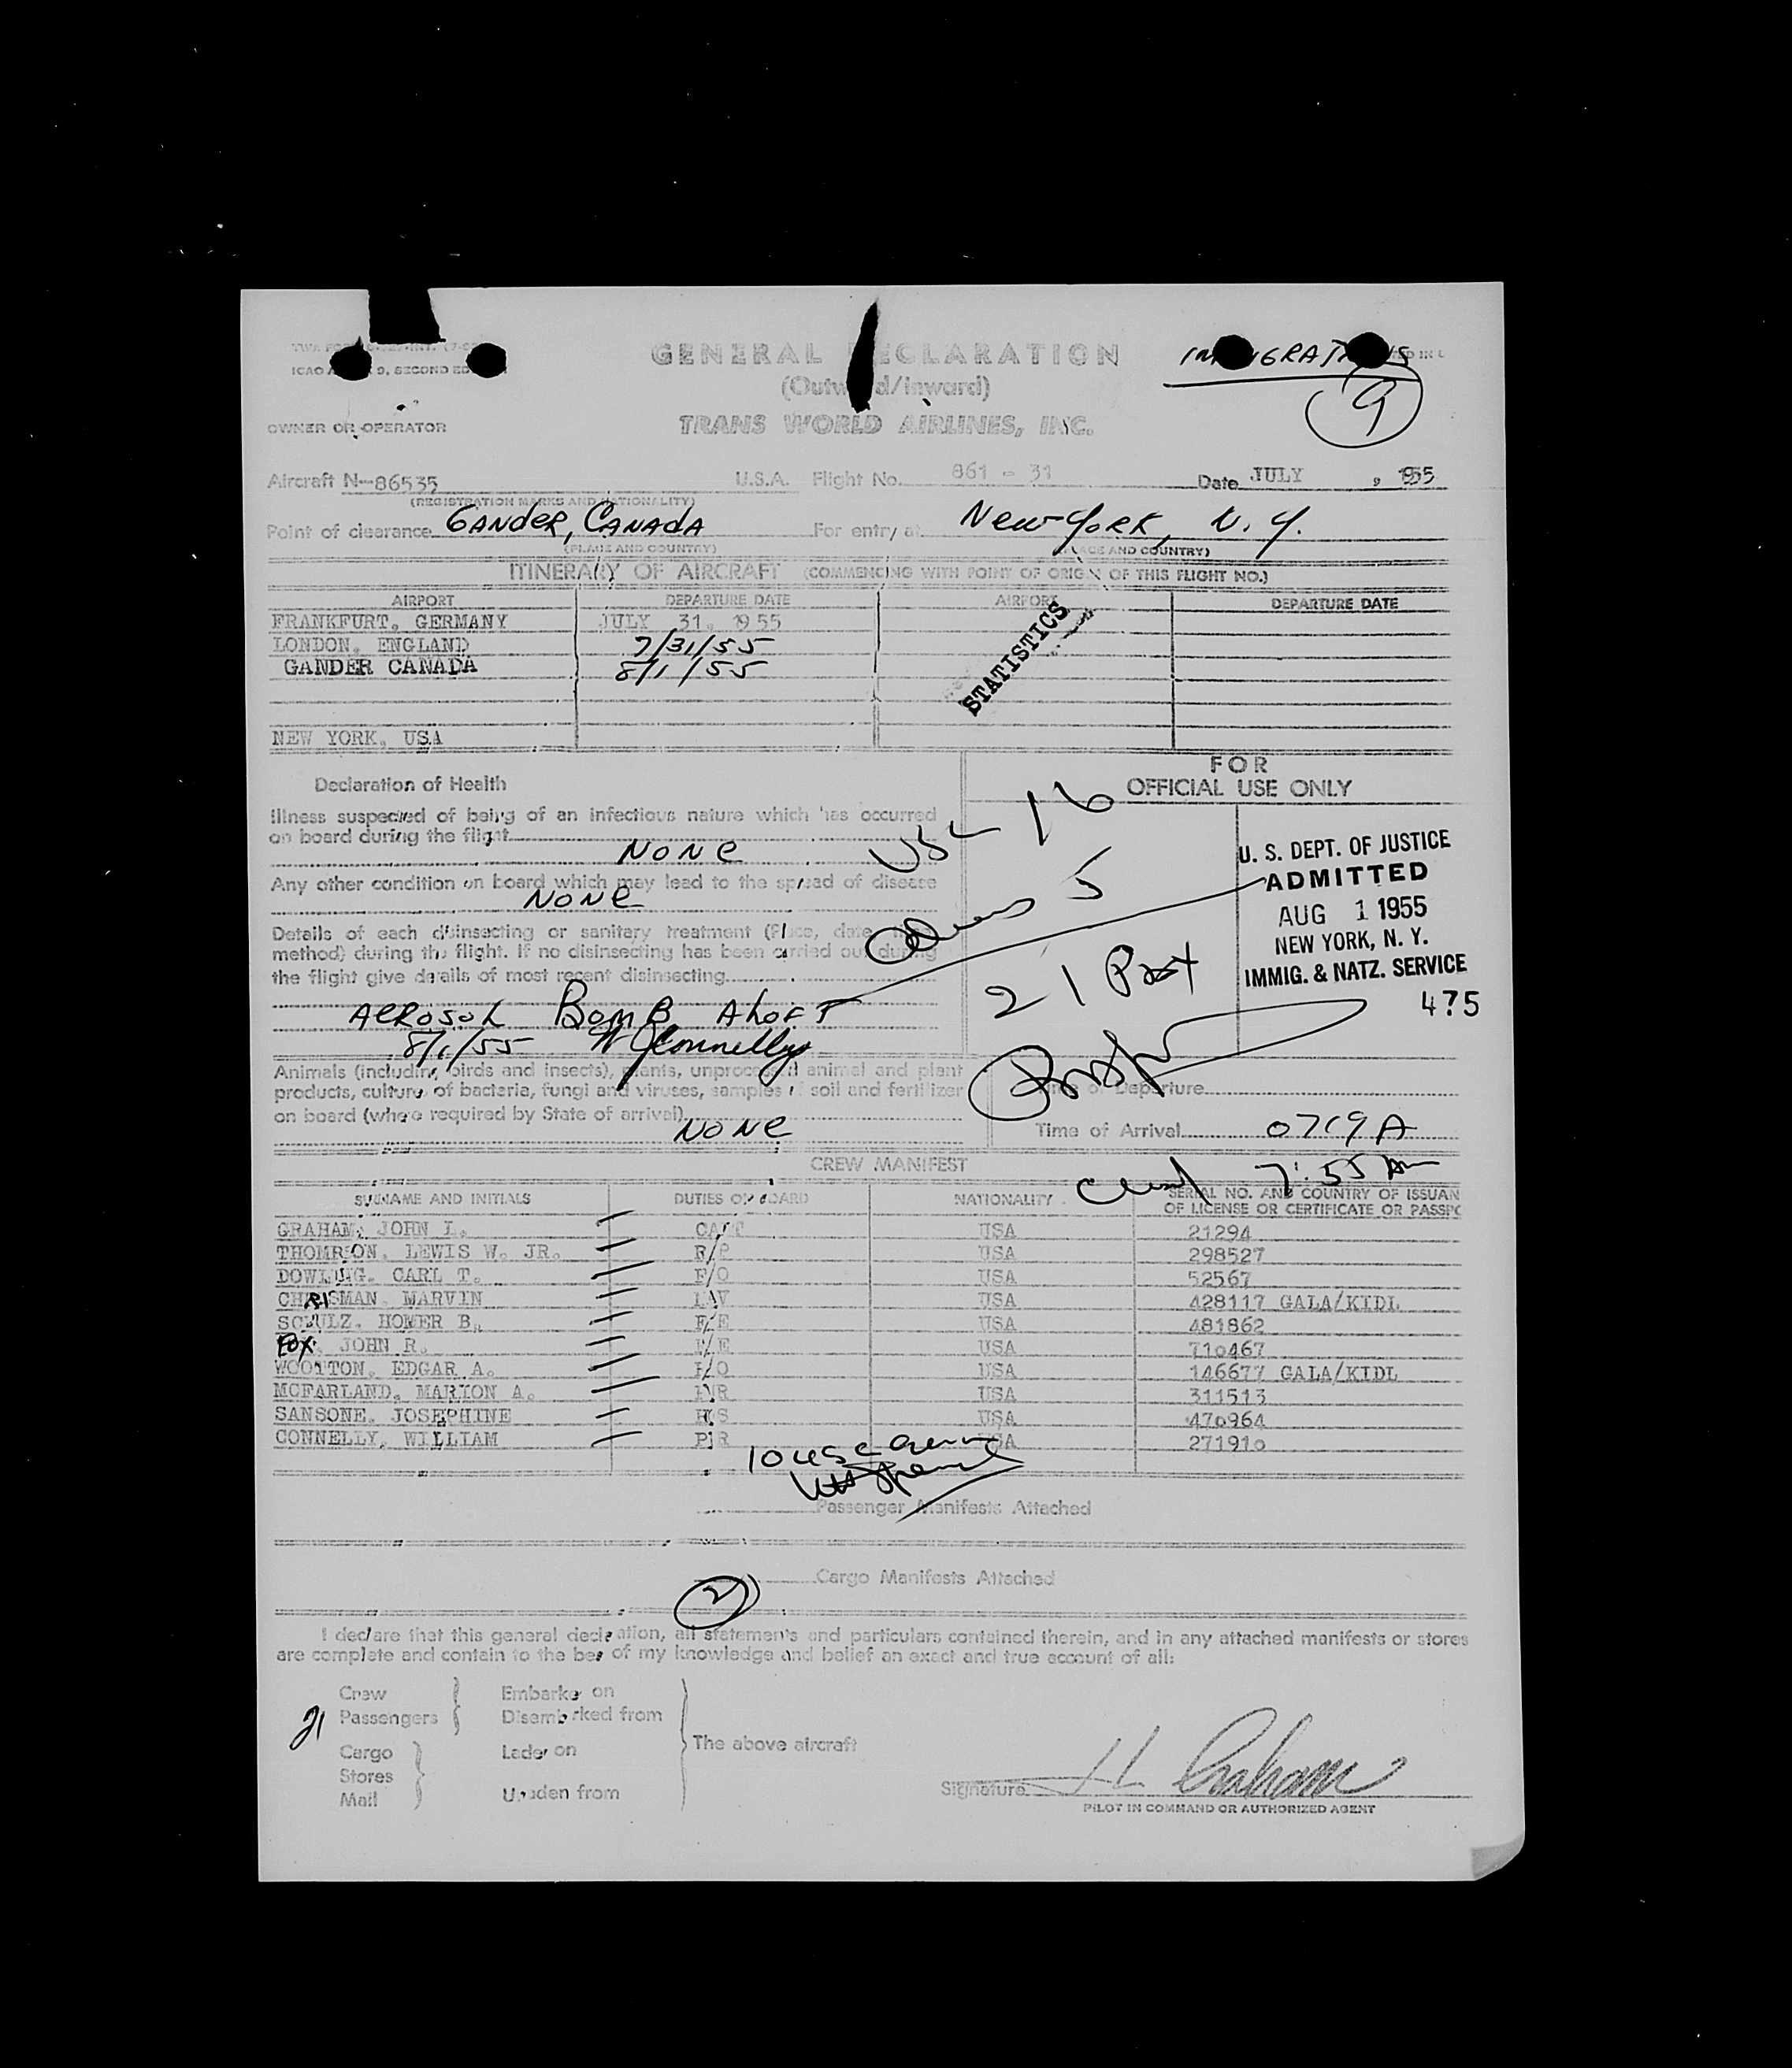 ICAO A 9, SECOND ED
GENERAL DECLARATION
(Outward/Inward)
TRANS WORLD AIRLINES, INC.
IMMIGRATIONS
9
OWNER OR OPERATOR
Aircraft N-86535 U.S.A. Flight No. 861 - 31 Date JULY , 1955
(REGISTRATION MARKS AND NATIONALITY)
Point of clearance GANDER, CANADA For entry at New York, N.Y.
(PLACE AND COUNTRY) (PLACE AND COUNTRY)
ITINERARY OF AIRCRAFT (COMMENCING WITH POINT OF ORIGIN OF THIS FLIGHT NO.)
AIRPORT DEPARTURE DATE AIRPORT DEPARTURE DATE
FRANKFURT, GERMANY JULY 31, 1955
LONDON, ENGLAND 7/31/55
GANDER CANADA 8/1/55
STATISTICS
NEW YORK, USA
Declaration of Health
Illness suspected of being of an infectious nature which has occurred
on board during the flight
NONE
Any other condition on board which may lead to the spread of disease
NONE
Details of each disinsecting or sanitary treatment (Place, date, time,
method) during the flight. If no disinsecting has been carried out during
the flight give details of most recent disinsecting
AEROSOL BOMB ALOFT
8/1/55 W Connelly
Animals (including birds and insects), plants, unprocessed animal and plant
products, cultures of bacteria, fungi and viruses, samples of soil and fertilizer
on board (where required by State of arrival)
NONE
FOR
OFFICIAL USE ONLY
USC 16
Aliens 5
21 Pax
U. S. DEPT. OF JUSTICE
ADMITTED
AUG 1 1955
NEW YORK, N. Y.
IMMIG. & NATZ. SERVICE
475
Time of Departure
Time of Arrival 0719 A
7:55 AM
CREW MANIFEST
SURNAME AND INITIALS DUTIES ON BOARD NATIONALITY SERIAL NO. AND COUNTRY OF ISSUAN
OF LICENSE OR CERTIFICATE OR PASSPO
GRAHAM, JOHN L. CAPT USA 21294
THOMPSON, LEWIS W. JR. R/P USA 298527
DOWLING, CARL T. F/O USA 52567
CHRISMAN, MARVIN NAV USA 428117 GALA/KIDL
SCHULZ, HOMER B. F/E USA 481862
FOX, JOHN R. F/E USA 710467
WOOTTON, EDGAR A. R/O USA 146677 GALA/KIDL
MCFARLAND, MARION A. PUR USA 311513
SANSONE, JOSEPHINE H/S USA 470964
CONNELLY, WILLIAM PUR USA 271910
10 USC Crew
Passenger Manifests Attached
Cargo Manifests Attached
2
I declare that this general declaration, all statements and particulars contained therein, and in any attached manifests or stores
are complete and contain to the best of my knowledge and belief an exact and true account of all:
Crew Embarked on
21 Passengers Disembarked from
The above aircraft
Cargo Laden on
Stores
Mail Unladen from
Signature J L Graham
PILOT IN COMMAND OR AUTHORIZED AGENT